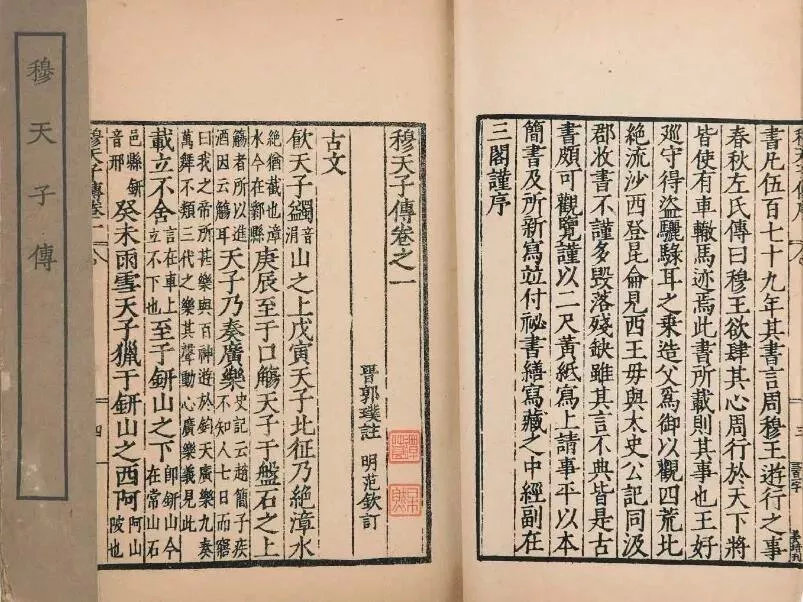 書凡伍百七十九年其書言周穆王遊行之事
春秋左氏傳曰穆王欲肆其心周行於天下將
皆使有車轍馬迹焉此書所載則其事也王好
廵守得盜驪騄耳之乗造父為御以觀四荒北
絶流沙西登昆侖見西王母與太史公記同汲
郡收書不謹多毀落殘缺雖其言不典皆是古
書頗可觀覽謹以二尺黃紙寫上請事平以本
簡書及所新寫並付祕書繕寫藏之中經副在
三閣謹序
穆天子傳卷之一
晉郭璞註 明范欽訂
古文
飲天子蠲音涓山之上戊寅天子北征乃絶漳水
絶猶截也漳水今在鄴縣庚辰至于口觴天子于盤石之上
觴者所以進酒因云觴耳天子乃奏廣樂史記云趙簡子疾不知人七日而寤
曰我之帝所甚樂與百神遊於鈞天廣樂九奏萬舞不類三代之樂其聲動心廣樂義見此
載立不舍言在車上立不下也至于鈃山之下即鈃山今在常山石
邑縣鈃音邢癸未雨雪天子獵于鈃山之西阿阿山陂也
穆天子傳卷一 四
穆天子傳